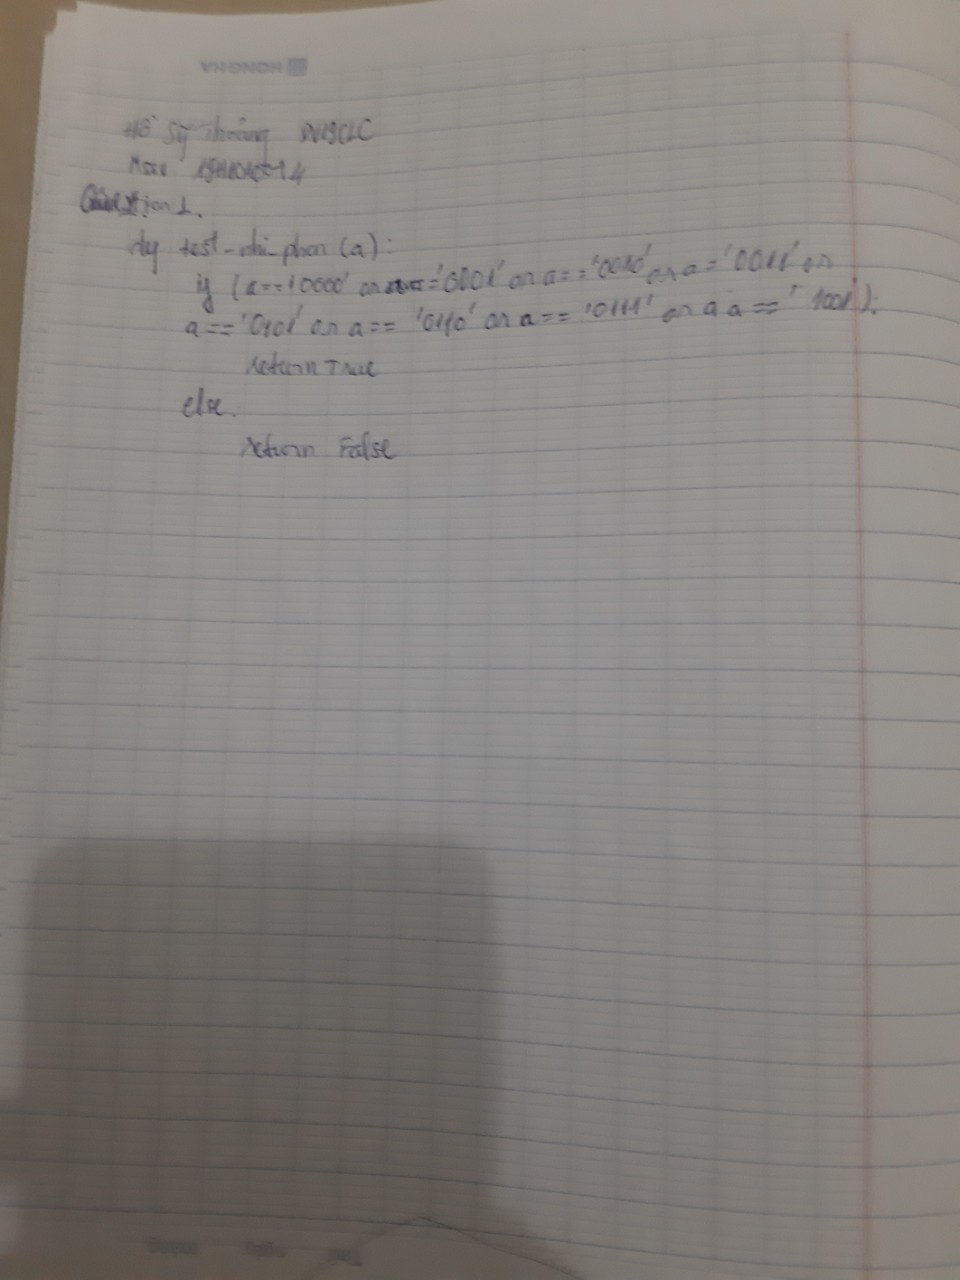 HONGHA
Hồ Sỹ Hoàng
Mssv
Question 1.
def test-nhi-phan (a):
if (a=='0000' or = '0001' or a=='0010' or a = '0011' or
a=='0101' or a== '0110' or a== '0111' or a a == '1001'):
return True
else.
return False